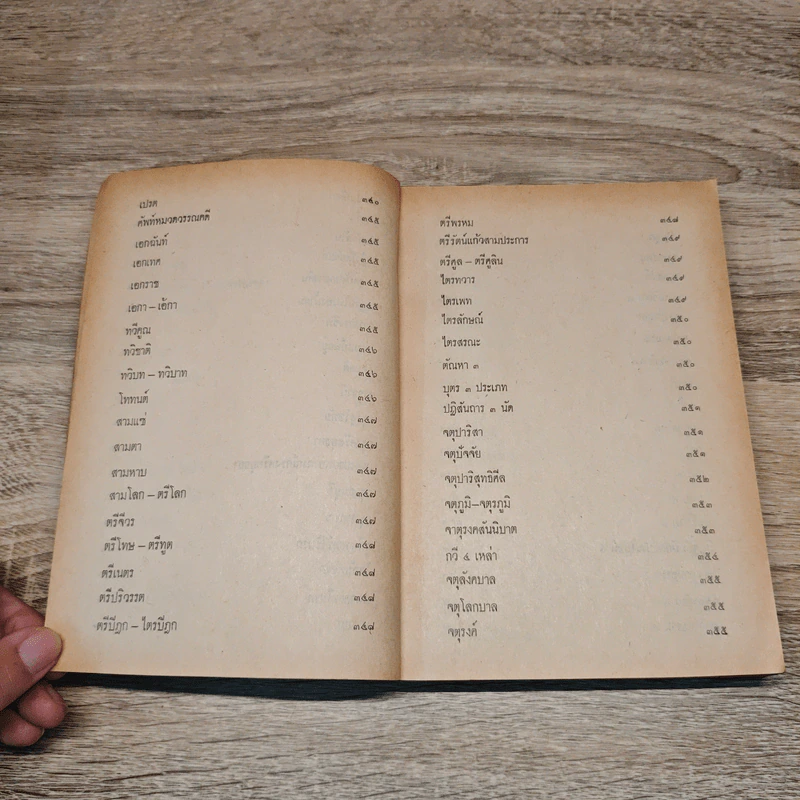 เปรต ๓๔๐
ศัพท์หมวดวรรณคดี ๓๔๕
เอกฉันท์ ๓๔๕
เอกเทศ ๓๔๕
เอกราช ๓๔๕
เอกา – เอ้กา ๓๔๕
ทวีคูณ ๓๔๕
ทวิชาติ ๓๔๖
ทวิบท – ทวิบาท ๓๔๖
โททนต์ ๓๔๖
สามแซ่ ๓๔๗
สามตา ๓๔๗
สามหาบ ๓๔๗
สามโลก – ตรีโลก ๓๔๗
ตรีจีวร ๓๔๗
ตรีโทษ – ตรีทูต ๓๔๘
ตรีเนตร ๓๔๘
ตรีปริวรรต ๓๔๘
ตรีปิฎก – ไตรปิฎก ๓๔๘
ตรีพรหม ๓๔๘
ตรีรัตน์แก้วสามประการ ๓๔๙
ตรีศูล – ตรีศูลิน ๓๔๙
ไตรทวาร ๓๔๙
ไตรเพท ๓๔๙
ไตรลักษณ์ ๓๕๐
ไตรสรณะ ๓๕๐
ตัณหา ๓ ๓๕๐
บุตร ๓ ประเภท ๓๕๐
ปฏิสันถาร ๓ นัด ๓๕๑
จตุปาริสา ๓๕๑
จตุปัจจัย ๓๕๑
จตุปาริสุทธิศีล ๓๕๒
จตุภูมิ–จตุรภูมิ ๓๕๓
จาตุรงคสันนิบาต ๓๕๓
กวี ๔ เหล่า ๓๕๔
จตุสังคบาล ๓๕๕
จตุโลกบาล ๓๕๕
จตุรงค์ ๓๕๕